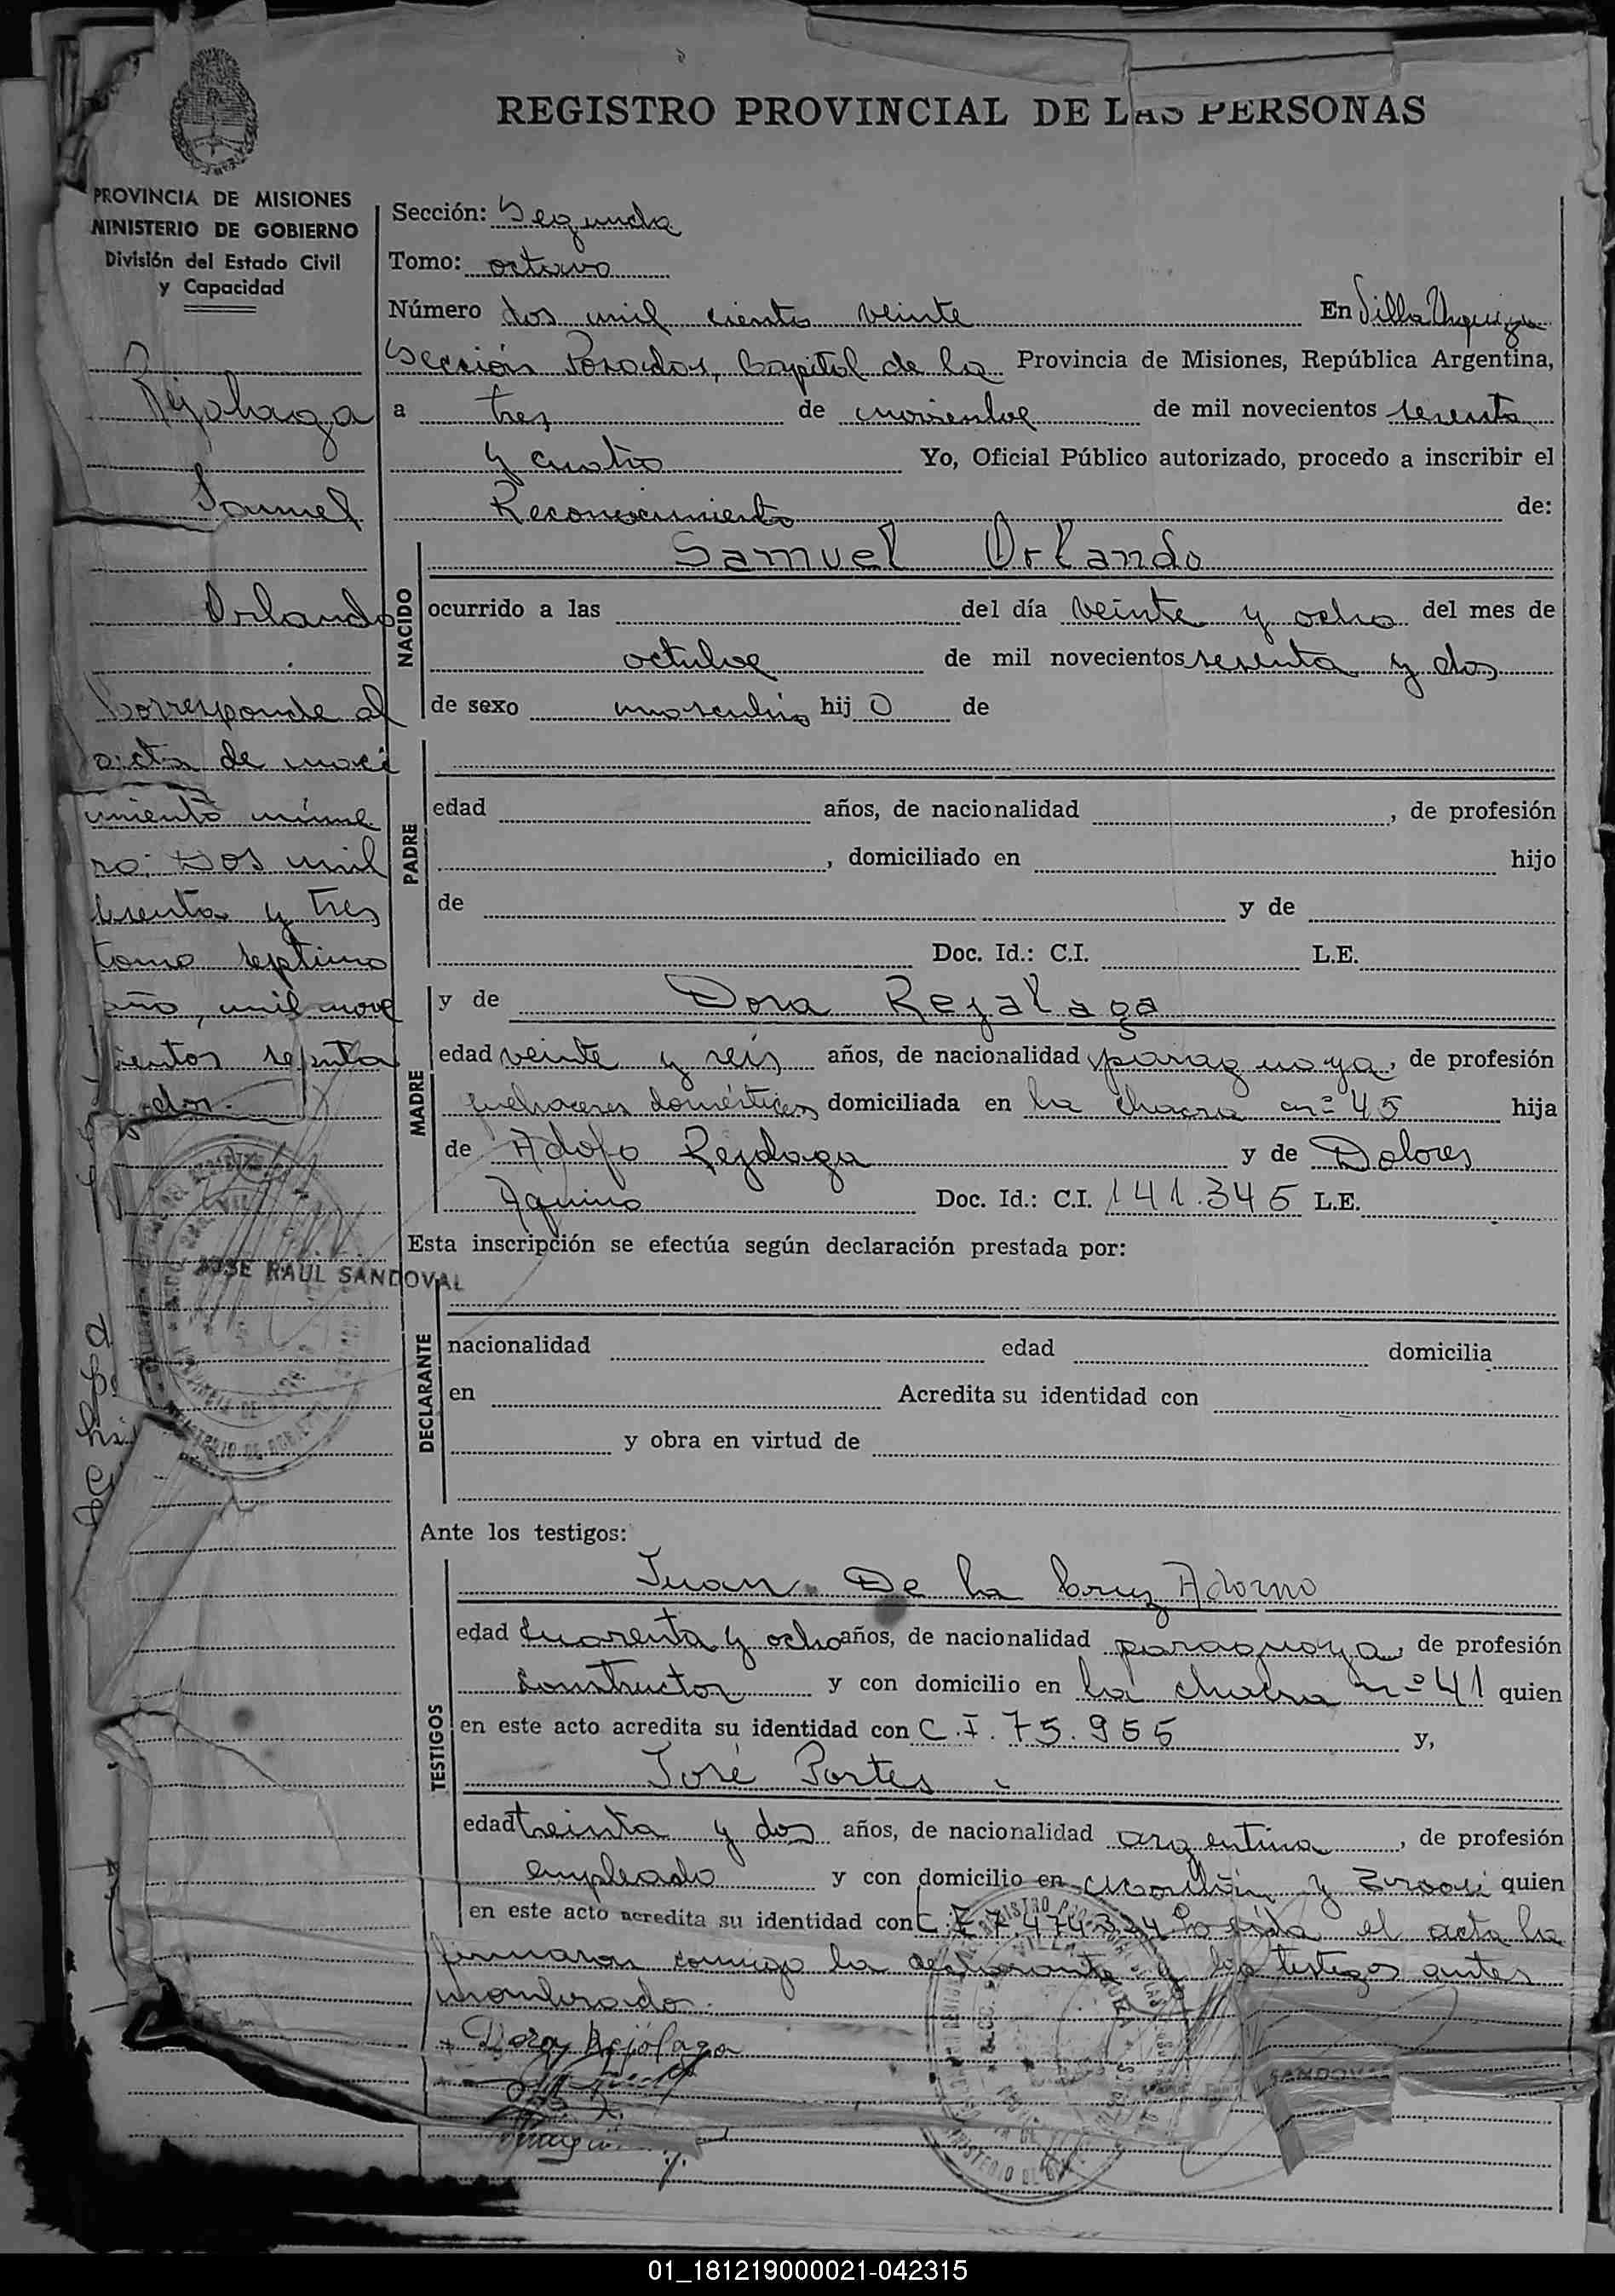 REGISTRO PROVINCIAL DE LAS PERSONAS
PROVINCIA DE MISIONES
MINISTERIO DE GOBIERNO
División del Estado Civil
y Capacidad
Rejalaga
Samuel
Orlando
Corresponde al
acta de naci
miento núme
ro: Dos mil
sesenta y tres
tomo septimo
año, mil nove
cientos sesenta
dos.
JOSE RAUL SANDOVAL
Sección: Segunda
Tomo: octavo
Número dos mil ciento veinte En Villa Urquiza
Sección Posadas, Capital de la Provincia de Misiones, República Argentina,
a tres de noviembre de mil novecientos sesenta
y cuatro Yo, Oficial Público autorizado, procedo a inscribir el
Reconocimiento de:
NACIDO
Samuel Orlando
ocurrido a las del día veinte y ocho del mes de
octubre de mil novecientos sesenta y dos
de sexo masculino hijo de
PADRE
edad años, de nacionalidad , de profesión
, domiciliado en hijo
de y de
Doc. Id.: C.I. L.E.
MADRE
y de Dora Rejalaga
edad veinte y seis años, de nacionalidad paraguaya, de profesión
quehaceres domésticos domiciliada en la chacra nº 45 hija
de Adolfo Rejalaga y de Dolores
Aquino Doc. Id.: C.I. 141.345 L.E.
Esta inscripción se efectúa según declaración prestada por:
DECLARANTE
nacionalidad edad domicilia
en Acredita su identidad con
y obra en virtud de
Ante los testigos:
TESTIGOS
Juan De la Cruz Adorno
edad cuarenta y ocho años, de nacionalidad paraguaya, de profesión
constructor y con domicilio en la chacra nº 41 quien
en este acto acredita su identidad con C.I. 75.955 y,
José Portes
edad treinta y dos años, de nacionalidad argentina, de profesión
empleado y con domicilio en y quien
en este acto acredita su identidad con C.I. 7.474.324 Leída el acta la
firmaron conmigo la declarante y los testigos antes
nombrado.
Dora Rejálaga
SANDOVAL
01_181219000021-042315